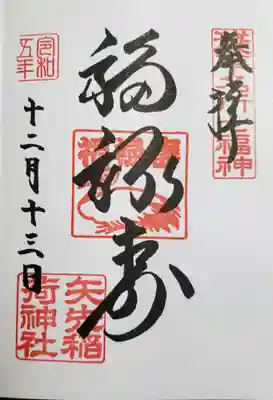 奉拝
福禄寿
矢先稲
荷神社
令和
五年
十二月十三日